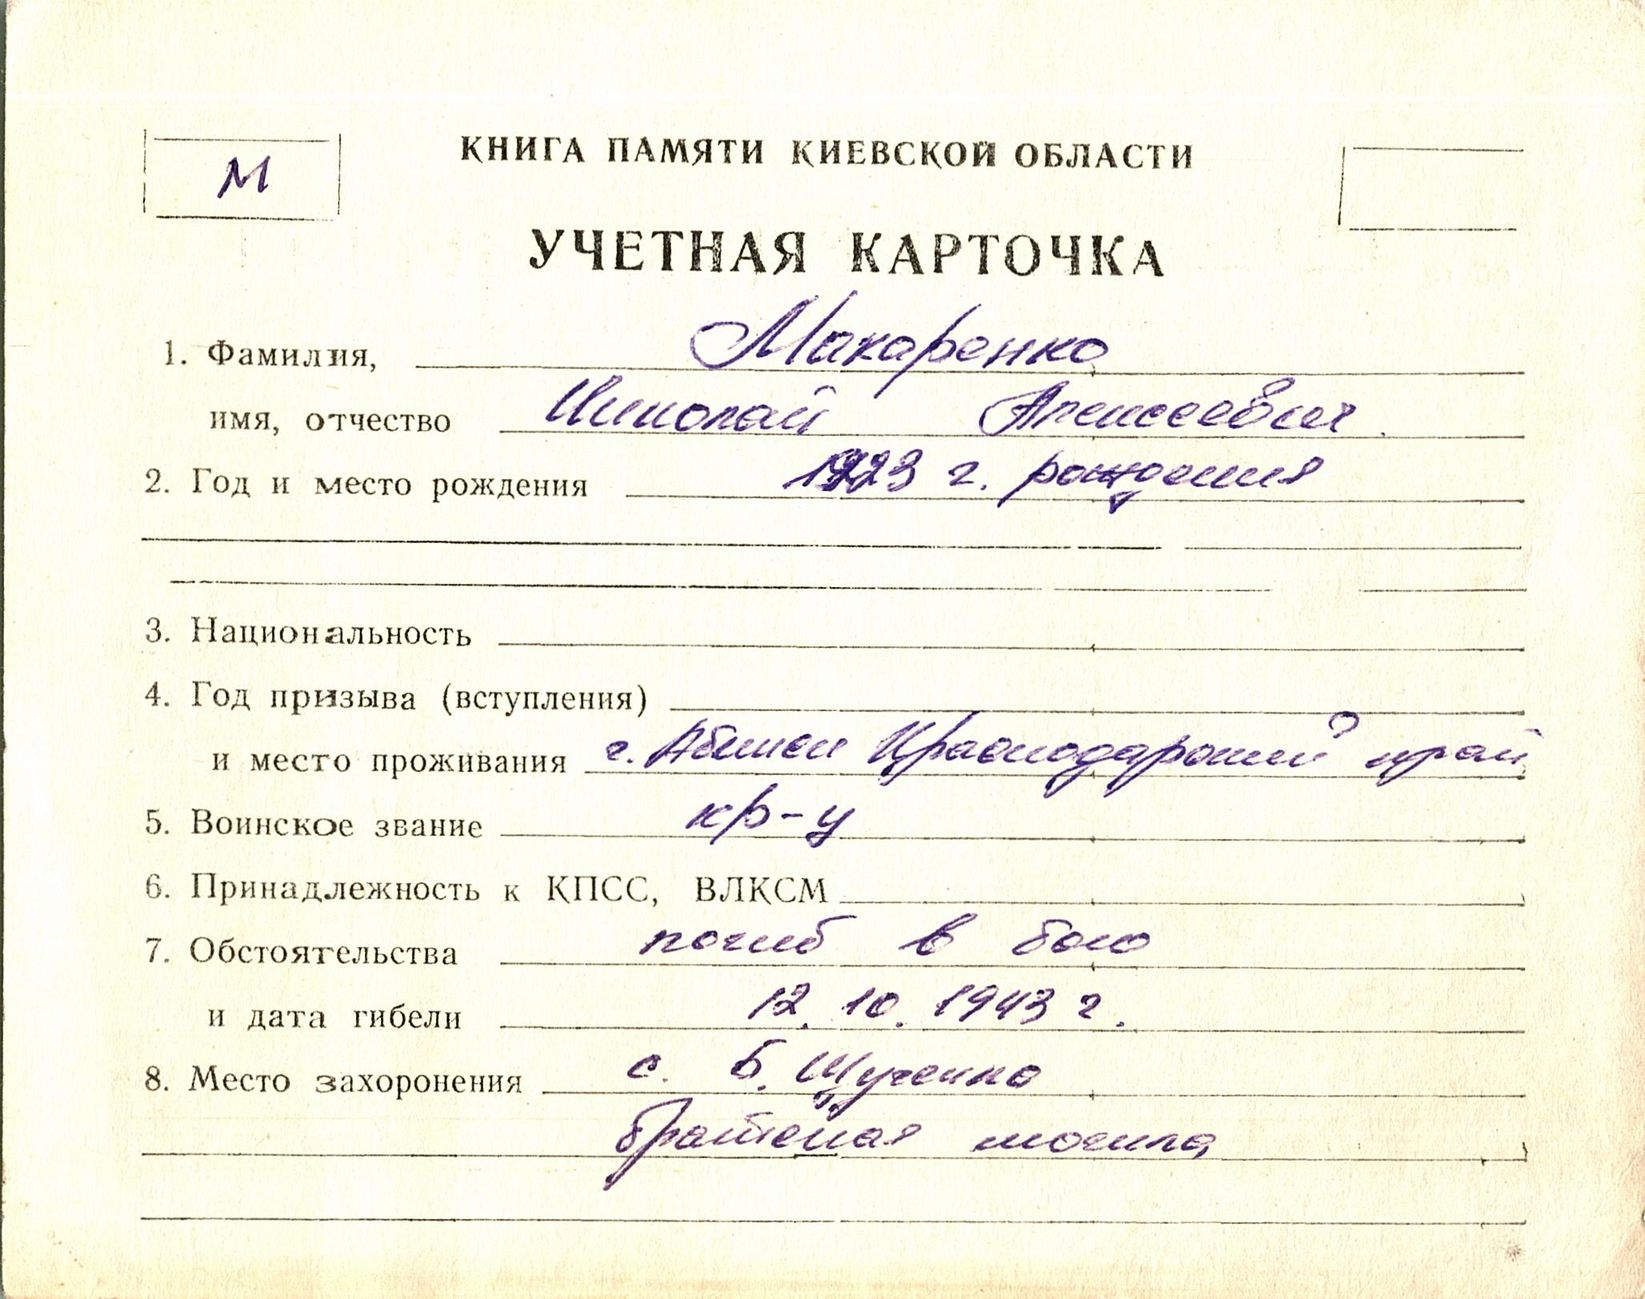 М
КНИГА ПАМЯТИ КИЕВСКОЙ ОБЛАСТИ
УЧЕТНАЯ КАРТОЧКА
1. Фамилия, Макаренко
имя, отчество Николай Алексеевич
2. Год и место рождения 1923 г. рождения
3. Национальность
4. Год призыва (вступления)
и место проживания г. Абинск Краснодарский край
5. Воинское звание кр-ц
6. Принадлежность к КПСС, ВЛКСМ
7. Обстоятельства погиб в бою
и дата гибели 12.10.1943 г.
8. Место захоронения с. Б. Щученка
братская могила